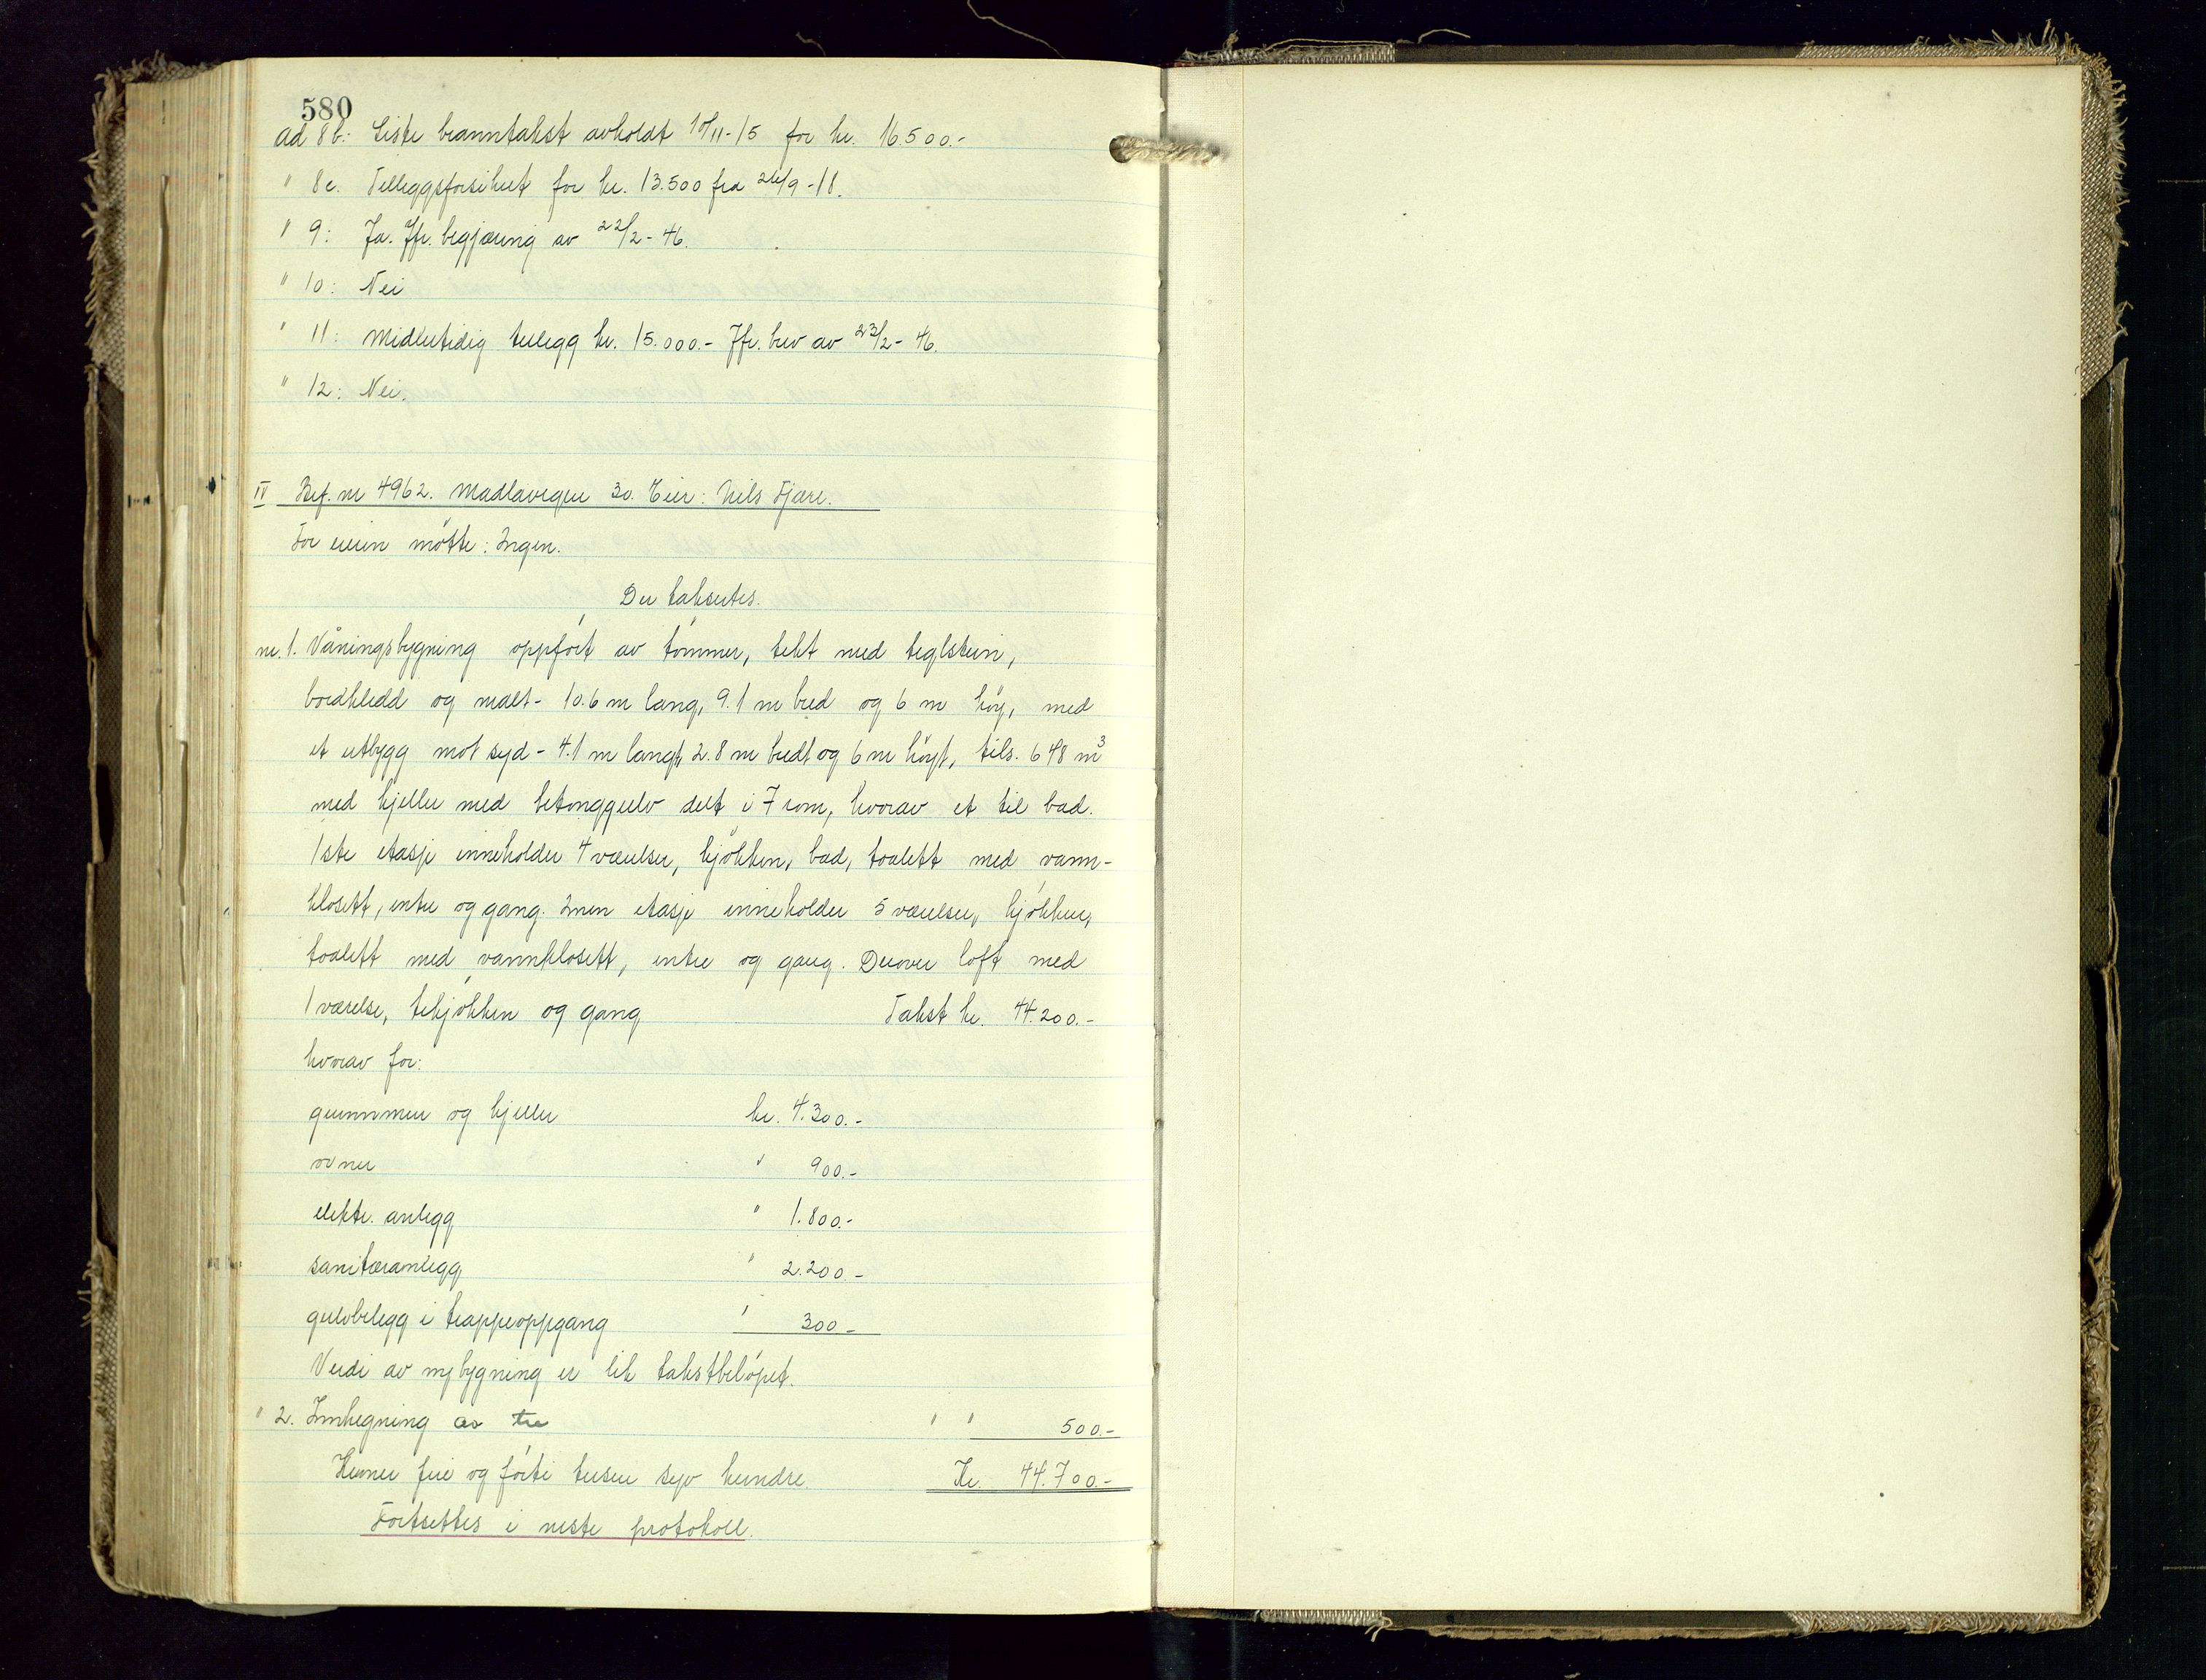 580
ad 8 b: Siste branntakst avholdt 10/11-15 for kr. 16.500.-
" 8 c. Tilleggsforsikret for kr. 13.500 fra 26/9-18.
" 9: Ja. Jfr. begjæring av 22/2-46.
" 10: Nei
" 11: Midlertidig tillegg kr. 15.000.- Jfr. brev av 23/2-46.
" 12: Nei.
IV Bref. nr 4962. Madlaveien 30. Eier: Nils Tjøre.
For eieren møtte: Ingen.
Der takseres.
nr. 1. Våningsbygning oppført av tømmer, tekt med teglstein,
bordkledd og malt - 10.6 m lang, 9.1 m bred og 6 m høy, med
et utbygg mot syd - 4.1 m langt, 2.8 m bredt og 6 m høyt, tils. 648 m³
med kjeller med betonggulv delt i 7 rom, hvorav et til bad.
1ste etasje inneholder 4 værelser, kjøkken, bad, toalett med vann-
klosett, entre og gang. 2nen etasje inneholder 5 værelser, kjøkken,
toalett med vannklosett, entre og gang. Derover loft med
1 værelse, tekjøkken og gang Takst kr. 44.200.-
hvorav for:
grunnmur og kjeller kr. 4.300.-
ovner " 900.-
elektr. anlegg " 1.800.-
sanitæranlegg " 2.200.-
gulvbelegg i trappeoppgang " 300 -
Verdi av nybygning er lik takstbeløpet.
" 2. Innhegning av tre " " 500.-
Kroner fire og førti tusen syv hundre Kr. 44.700.-
Fortsettes i neste protokoll.